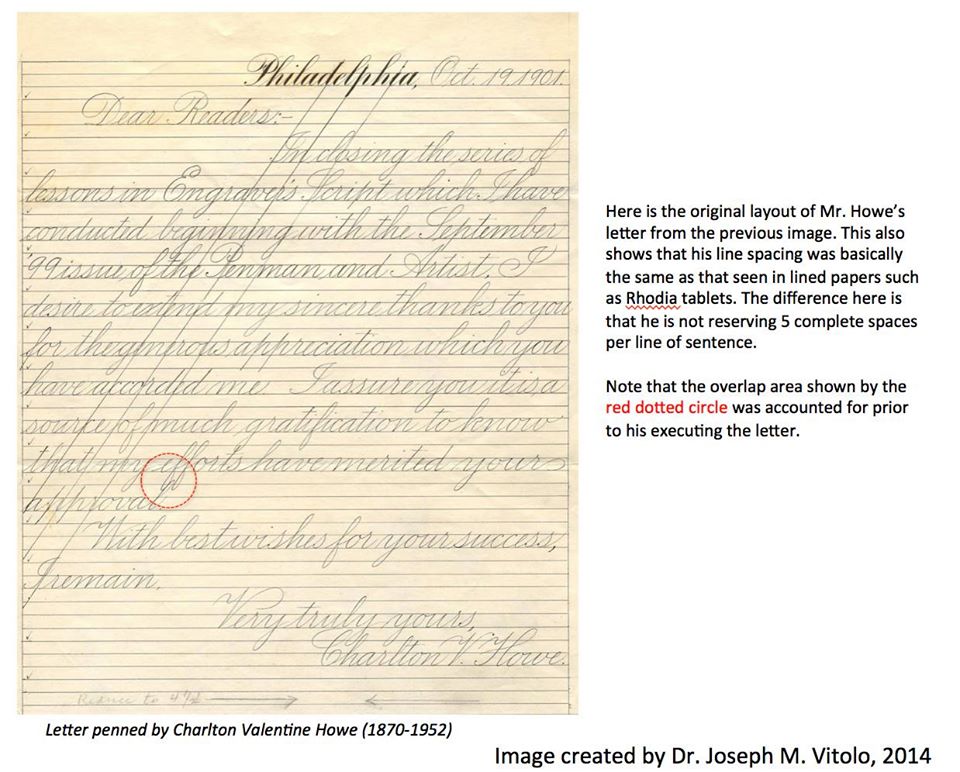 Philadelphia, Oct. 19, 1901.
Dear Readers:-
In closing the series of
lessons in Engraver's Script which I have
conducted beginning with the September
'99 issue of the Penman and Artist, I
desire to extend my sincere thanks to you
for the generous appreciation which you
have accorded me. I assure you it is a
source of much gratification to know
that my efforts have merited your
approval.
With best wishes for your success,
I remain,
Very truly yours,
Charlton V. Howe.
Reduce to 4½
Letter penned by Charlton Valentine Howe (1870-1952)
Here is the original layout of Mr. Howe's
letter from the previous image. This also
shows that his line spacing was basically
the same as that seen in lined papers such
as Rhodia tablets. The difference here is
that he is not reserving 5 complete spaces
per line of sentence.
Note that the overlap area shown by the
red dotted circle was accounted for prior
to his executing the letter.
Image created by Dr. Joseph M. Vitolo, 2014